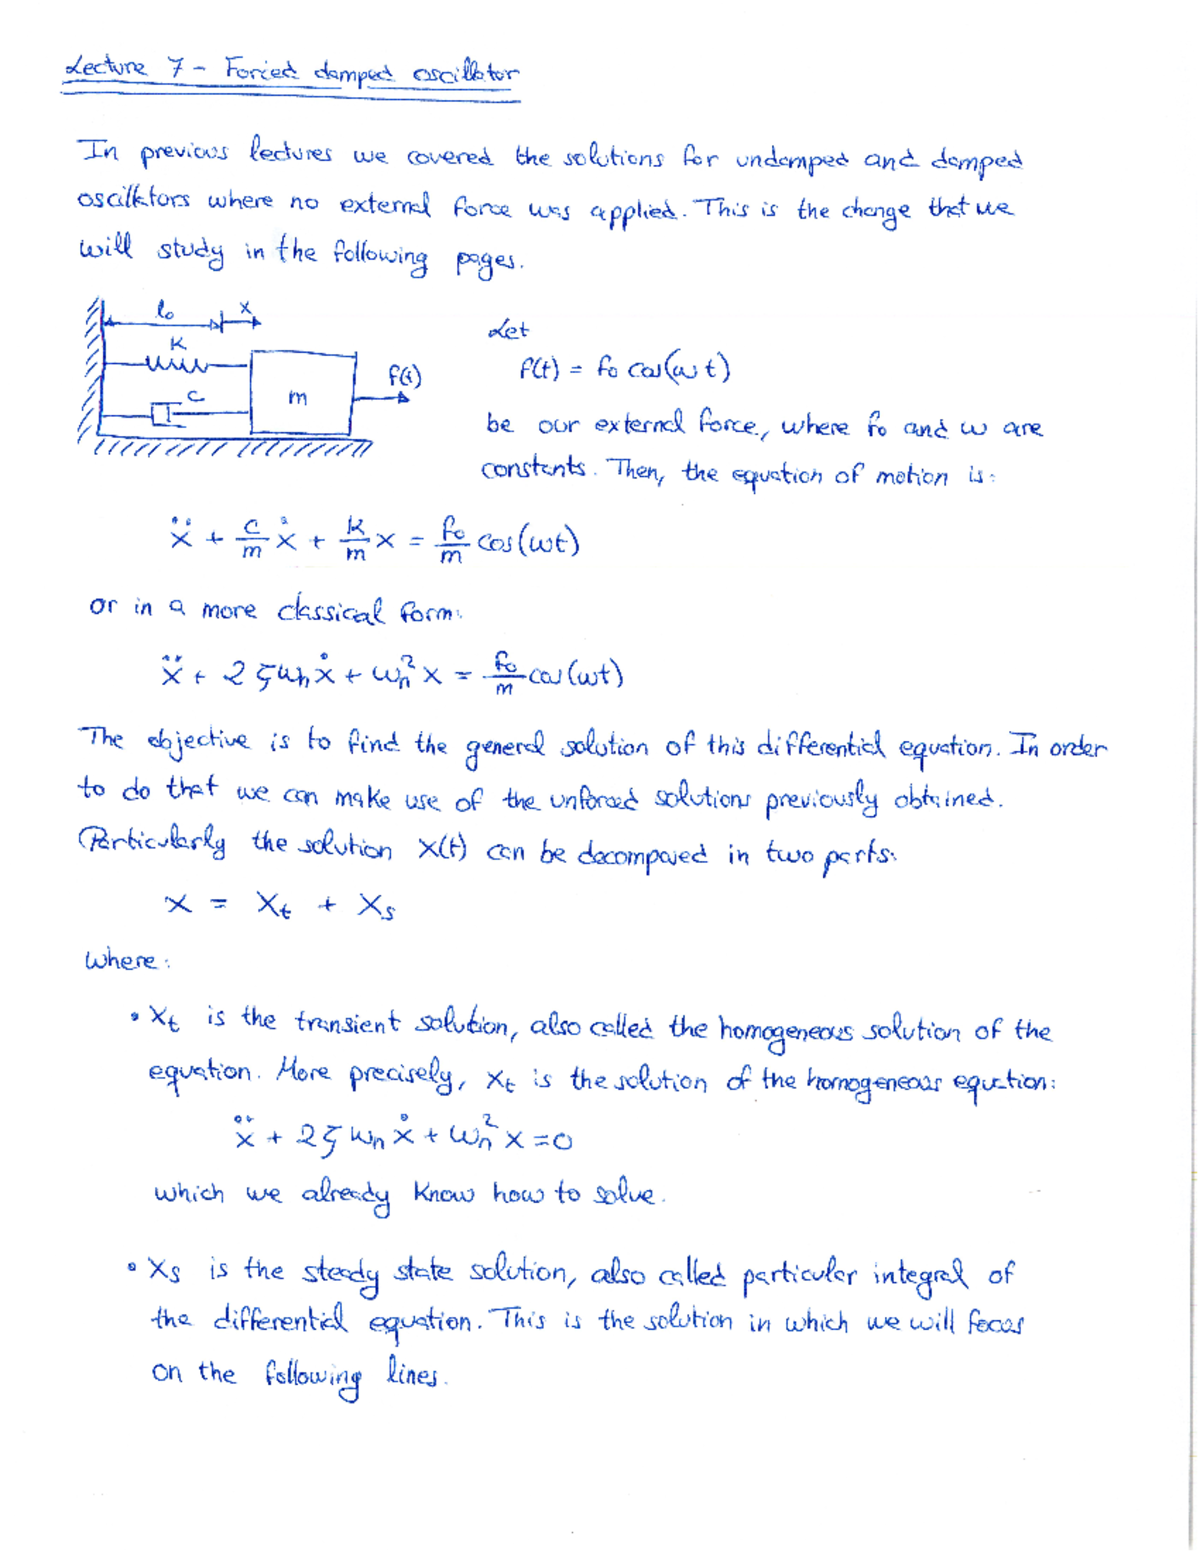 Lecture 7 - Forced damped oscillator
In previous lectures we covered the solutions for undamped and damped
oscillators where no external force was applied. This is the change that we
will study in the following pages.
l₀ x
k
c
m
f(t)
Let
f(t) = f₀ cos(ωt)
be our external force, where f₀ and ω are
constants. Then, the equation of motion is:
ẍ + c/m ẋ + k/m x = f₀/m cos(ωt)
or in a more classical form:
ẍ + 2ζωₙẋ + ωₙ²x = f₀/m cos(ωt)
The objective is to find the general solution of this differential equation. In order
to do that we can make use of the unforced solutions previously obtained.
Particularly the solution x(t) can be decomposed in two parts:
x = xₜ + xₛ
where:
• xₜ is the transient solution, also called the homogeneous solution of the
equation. More precisely, xₜ is the solution of the homogeneous equation:
ẍ + 2ζωₙẋ + ωₙ²x = 0
which we already know how to solve.
• xₛ is the steady state solution, also called particular integral of
the differential equation. This is the solution in which we will focus
on the following lines.